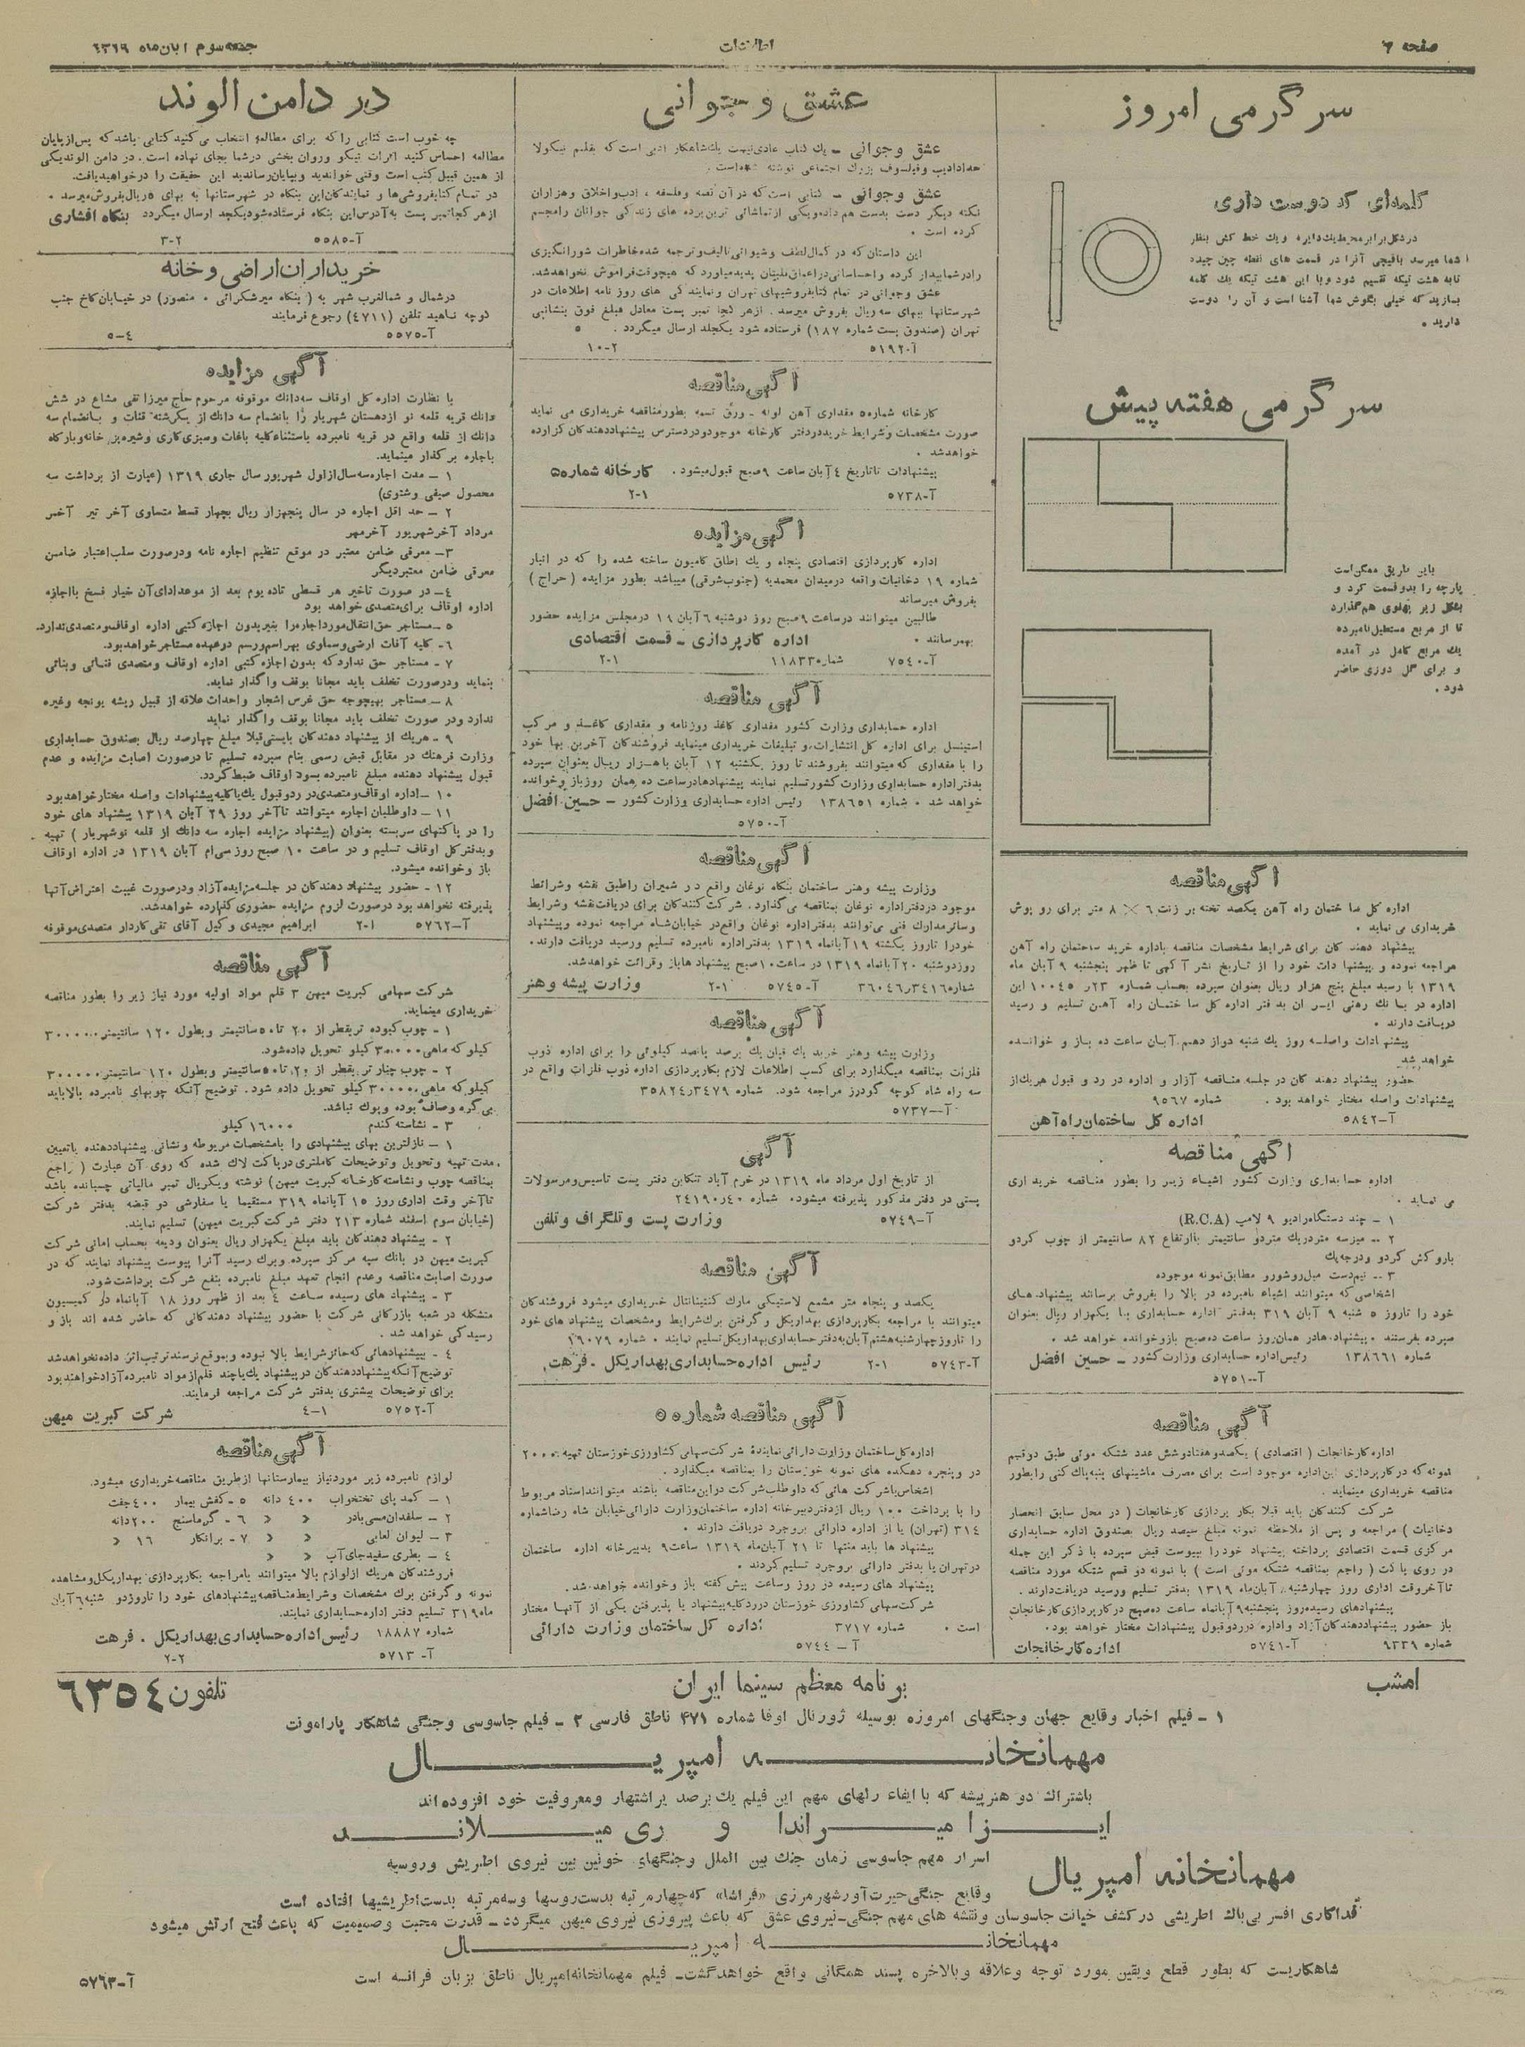 صفحه ٦
اطلاعات
جمعه سوم آبان ماه ١٣١٩
سرگرمی امروز
کلمه‌ای که دوست داری
در شکل برابر محیط یک دایره و یک خط کش بنظر
شما میرسد باقیچی آنرا در قسمت های نقطه چین چیده
تا به هشت تیکه تقسیم شود و با این هشت تیکه یک کلمه
بسازید که خیلی بگوش شما آشنا است و آن را دوست
دارید .
سرگرمی هفته پیش
باین طریق ممکن است
پارچه را بدو قسمت کرد و
بشکل زیر پهلوی هم گذارد
تا از مربع مستطیل نامبرده
یک مربع کامل در آمده
و برای گل دوزی حاضر
شود .
آگهی مناقصه
اداره کل ساختمان راه آهن یکصد تخته برزنت ٦ × ٨ متر برای روپوش
خریداری می نماید .
پیشنهاد دهندکان برای شرایط مشخصات مناقصه باداره خرید ساختمان راه آهن
مراجعه نموده و پیشنهادات خود را از تاریخ نشر آگهی تا ظهر پنجشنبه ٩ آبان ماه
١٣١٩ با رسید مبلغ پنج هزار ریال بعنوان سپرده بحساب شماره ٢٣ر١٠٠٤٥ این
اداره در بانک رهنی ایران بدفتر اداره کل ساختمان راه آهن تسلیم و رسید
دریافت دارند .
پیشنهادات واصله روز یک شنبه دوازدهم آبان ساعت ده باز و خوانده
خواهد شد
حضور پیشنهاد دهندکان در جلسه مناقصه آزاد و اداره در رد و قبول هریک از
پیشنهادات واصله مختار خواهد بود . شماره ٩٥٦٧
آ-٥٨٤٢ اداره کل ساختمان راه آهن
آگهی مناقصه
اداره حسابداری وزارت کشور اشیاء زیر را بطور مناقصه خریداری
می نماید
١ - چند دستگاه رادیو ٩ لامپ (R.C.A)
٢ - میزسه متر در یک متر و دو سانتیمتر باارتفاع ٨٢ سانتیمتر از چوب گردو
باروکش گردو و درجه یک
٣ - نیمدست مبل روشورو مطابق نمونه موجوده
اشخاصی که میتوانند اشیاء نامبرده در بالا را بفروش برسانند پیشنهادهای
خود را تا روز ٥ شنبه ٩ آبان ٣١٩ بدفتر اداره حسابداری با یکهزار ریال بعنوان
سپرده بفرستند . پیشنهادها در همان روز ساعت ده صبح باز و خوانده خواهد شد .
شماره ١٣٨٦٦١ رئیس اداره حسابداری وزارت کشور - حسین افضل
آ-٥٧٥١
آگهی مناقصه
اداره کارخانجات ( اقتصادی ) یکصد و هفتاد و شش عدد شتکه موئی طبق دو قسم
نمونه که در کارپردازی این اداره موجود است برای مصرف ماشینهای پنبه پاک کنی را بطور
مناقصه خریداری مینماید .
شرکت کنندکان باید قبلا بکار پردازی کارخانجات ( در محل سابق انحصار
دخانیات ) مراجعه و پس از ملاحظه نمونه مبلغ سیصد ریال بصندوق اداره حسابداری
مرکزی قسمت اقتصادی پرداخته پیشنهاد خود را بپیوست قبض سپرده با ذکر این جمله
در روی پاکت ( راجع بمناقصه شتکه موئی است ) با نمونه دو قسم شتکه مورد مناقصه
تا آخر وقت اداری روز چهارشنبه آبان ماه ١٣١٩ بدفتر تسلیم و رسید دریافت دارند .
پیشنهادهای رسیده روز پنجشنبه ٩ آبانماه ساعت ده صبح در کارپردازی کارخانجات
باز حضور پیشنهاد دهندگان آزاد و اداره در رد و قبول پیشنهادات مختار خواهد بود .
شماره ٩٣٣٩ آ-٥٧٤١ اداره کارخانجات
عشق و جوانی
عشق و جوانی - یک کتاب عادی نیست یک شاهکار ادبی است که بقلم نیکولا
حداد ادیب و فیلسوف بزرگ اجتماعی نوشته شده است .
عشق و جوانی - کتابی است که در آن قصه و فلسفه ، ادب و اخلاق و هزاران
نکته دیگر دست بدست هم داده و یکی از تماشائی ترین پرده های زندگی جوانان را مجسم
کرده است .
این داستان که در کمال لطف و شیوائی تالیف و ترجمه شده خاطرات شورانگیزی
را در شما بیدار کرده و احساساتی در اعماق قلبتان پدید میاورد که هیچوقت فراموش نخواهد شد .
عشق و جوانی در تمام کتابفروشیهای تهران و نمایندگی های روزنامه اطلاعات در
شهرستانها ببهای سه ریال بفروش میرسد . از هر کجا تمبر پست معادل مبلغ فوق بنشانی
تهران (صندوق پست شماره ١٨٧) فرستاده شود یکجلد ارسال میگردد . ٥
آ-٥١٩٢ ١٠-٢
آگهی مناقصه
کارخانه شماره ٥ مقداری آهن لوله - ورق تسمه بطور مناقصه خریداری می نماید
صورت مشخصات و شرایط خرید در دفتر کارخانه موجود و در دسترس پیشنهاد دهندکان گزارده
خواهد شد .
پیشنهادات تا تاریخ ٤ آبان ساعت ٩ صبح قبول میشود . کارخانه شماره ٥
آ-٥٧٣٨ ٢-١
آگهی مزایده
اداره کارپردازی اقتصادی پنجاه و یک اطاق کامیون ساخته شده را که در انبار
شماره ١٩ دخانیات واقعه در میدان محمدیه (جنوب شرقی) میباشد بطور مزایده (حراج)
بفروش میرساند
طالبین میتوانند در ساعت ٩ صبح روز دوشنبه ٦ آبان ١٩ در مجلس مزایده حضور
بهمرسانند . اداره کارپردازی - قسمت اقتصادی
آ-٧٥٤٠ شماره ١١٨٣٣ ٢-١
آگهی مناقصه
اداره حسابداری وزارت کشور مقداری کاغذ روزنامه و مقداری کاغذ و مرکب
استینسل برای اداره کل انتشارات و تبلیغات خریداری مینماید فروشندکان آخرین بها خود
را با مقداری که میتوانند بفروشند تا روز یکشنبه ١٢ آبان با هزار ریال بعنوان سپرده
بدفتر اداره حسابداری وزارت کشور تسلیم نمایند پیشنهادها در ساعت ده همان روز باز و خوانده
خواهد شد . شماره ١٣٨٦٥١ رئیس اداره حسابداری وزارت کشور - حسین افضل
آ-٥٧٥٠
آگهی مناقصه
وزارت پیشه و هنر ساختمان بنگاه نوغان واقع در شمیران را طبق نقشه و شرائط
موجود در دفتر اداره نوغان بمناقصه می گذارد . شرکت کنندکان برای دریافت نقشه و شرایط
و سائر مدارک فنی می توانند بدفتر اداره نوغان واقع در خیابان شاه مراجعه نموده و پیشنهاد
خود را تا روز یکشنبه ١٩ آبانماه ١٣١٩ بدفتر اداره نامبرده تسلیم و رسید دریافت دارند .
روز دوشنبه ٢٠ آبانماه ١٣١٩ در ساعت ١٠ صبح پیشنهادها باز و قرائت خواهد شد .
شماره ٣٤١٦ر٣٦٠٤٦ آ-٥٧٤٥ ٢-١ وزارت پیشه و هنر
آگهی مناقصه
وزارت پیشه و هنر خرید یک قپان یک برصد پانصد کیلوئی را برای اداره ذوب
فلزات بمناقصه میگذارد برای کسب اطلاعات لازم بکارپردازی اداره ذوب فلزات واقع در
سه راه شاه کوچه گودرز مراجعه شود . شماره ٣٤٧٩ر٣٥٨٢٤
آ-٥٧٣٧
آگهی
از تاریخ اول مرداد ماه ١٣١٩ در خرم آباد تنکابن دفتر پست تاسیس و مرسولات
پستی در دفتر مذکور پذیرفته میشود . شماره ٤٠ر٢٤١٩٠
آ-٥٧٤٩ وزارت پست و تلگراف و تلفن
آگهی مناقصه
یکصد و پنجاه متر مشمع لاستیکی مارک کنتیناتال خریداری میشود فروشندکان
میتوانند با مراجعه بکارپردازی بهداریکل و گرفتن برک شرایط و مشخصات پیشنهادهای خود
را تا روز چهارشنبه هشتم آبان به دفتر حسابداری بهداریکل تسلیم نمایند . شماره ١٩٠٧٩
آ-٥٧٤٣ ٢-١ رئیس اداره حسابداری بهداریکل . فرهت
آگهی مناقصه شماره ٥٥
اداره کل ساختمان وزارت دارائی نماینده شرکت سهامی کشاورزی خوزستان تهیه ٢٠٠٠
در و پنجره دهکده های نمونه خوزستان را بمناقصه میگذارد .
اشخاص یا شرکت هائی که داوطلب شرکت در این مناقصه باشند میتوانند اسناد مربوط
را با پرداخت ١٠٠ ریال از دفتر دبیرخانه اداره ساختمان وزارت دارائی خیابان شاه رضا شماره
٣١٤ (تهران) یا از اداره دارائی بروجرد دریافت دارند .
پیشنهادها باید منتها تا ٢١ آبان ماه ١٣١٩ ساعت ٩ بدبیرخانه اداره ساختمان
در تهران یا بدفتر دارائی بروجرد تسلیم گردند .
پیشنهاد های رسیده در روز و ساعت پیش گفته باز و خوانده خواهد شد .
شرکت سهامی کشاورزی خوزستان در رد کلیه پیشنهاد یا پذیرفتن یکی از آنها مختار
است . شماره ٣٧١٧ اداره کل ساختمان وزارت دارائی
آ - ٥٧٤٤
در دامن الوند
چه خوب است کتابی را که برای مطالعه انتخاب می کنید کتابی باشد که پس از پایان
مطالعه احساس کنید اثرات نیکو و روان بخشی در شما بجای نهاده است . در دامن الوند یکی
از همین قبیل کتب است وقتی خواندید و بپایان رساندید این حقیقت را درخواهید یافت .
در تمام کتابفروشی ها و نمایندکان این بنگاه در شهرستانها به بهای ٥ ریال بفروش میرسد .
از هر کجا تمبر پست به آدرس این بنگاه فرستاده شود یکجلد ارسال میگردد بنگاه افشاری
آ-٥٥٨٥ ٣-٢
خریداران اراضی و خانه
در شمال و شمالغرب شهر به ( بنگاه میرشکرائی . منصور) در خیابان کاخ جنب
کوچه ناهید تلفن (٤٧١١) رجوع فرمایند
آ-٥٥٧٥ ٥-٤
آگهی مزایده
با نظارت اداره کل اوقاف سه دانک موقوفه مرحوم حاج میرزا تقی مشاع در شش
دانک قریه قلعه نو از دهستان شهریار را بانضمام سه دانک از یکرشته قنات و بانضمام سه
دانک از قلعه واقع در قریه نامبرده باستثناء کلیه باغات و سبزی کاری و شیره پز خانه و بارگاه
باجاره برگذار مینماید .
١ - مدت اجاره سه سال از اول شهریور سال جاری ١٣١٩ (عبارت از برداشت سه
محصول صیفی و شتوی)
٢ - حد اقل اجاره در سال پنجهزار ریال بچهار قسط متساوی آخر تیر آخر
مرداد آخر شهریور آخر مهر
٣- معرفی ضامن معتبر در موقع تنظیم اجاره نامه و در صورت سلب اعتبار ضامن
معرفی ضامن معتبر دیگر
٤- در صورت تاخیر هر قسطی تا ده یوم بعد از موعد ادای آن خیار فسخ با اجازه
اداره اوقاف برای متصدی خواهد بود
٥ - مستاجر حق انتقال مورد اجاره را بغیر بدون اجازه کتبی اداره اوقاف و متصدی ندارد .
٦- کلیه آفات ارضی و سماوی بهر اسم و رسم در عهده مستاجر خواهد بود .
٧ - مستاجر حق ندارد که بدون اجازه کتبی اداره اوقاف و متصدی قناتی و بنائی
بنماید و در صورت تخلف باید مجانا بوقف واگذار نماید .
٨ - مستاجر بهیچوجه حق غرس اشجار و احداث علاقه از قبیل ریشه یونجه و غیره
ندارد و در صورت تخلف باید مجانا بوقف واگذار نماید
٩ - هریک از پیشنهاد دهندکان بایستی قبلا مبلغ چهارصد ریال بصندوق حسابداری
وزارت فرهنگ در مقابل قبض رسمی بنام سپرده تسلیم تا در صورت اصابت مزایده و عدم
قبول پیشنهاد دهنده مبلغ نامبرده بسود اوقاف ضبط گردد .
١٠ - اداره اوقاف و متصدی در رد و قبول یک یا کلیه پیشنهادات واصله مختار خواهد بود
١١ - داوطلبان اجاره میتوانند تا آخر روز ٢٩ آبان ١٣١٩ پیشنهاد های خود
را در پاکتهای سربسته بعنوان (پیشنهاد مزایده اجاره سه دانک از قلعه نو شهریار ) تهیه
و بدفتر کل اوقاف تسلیم و در ساعت ١٠ صبح روز سی ام آبان ١٣١٩ در اداره اوقاف
باز و خوانده میشود .
١٢- حضور پیشنهاد دهندکان در جلسه مزایده آزاد و در صورت غیبت اعتراض آنها
پذیرفته نخواهد بود در صورت لزوم مزایده حضوری گذارده خواهد شد .
آ-٥٧٦٢ ٢-١ ابراهیم مجیدی وکیل آقای تقی کاردار متصدی موقوفه
آگهی مناقصه
شرکت سهامی کبریت میهن ٣ قلم مواد اولیه مورد نیاز زیر را بطور مناقصه
خریداری مینماید .
١ - چوب کبوده تر بقطر از ٢٠ تا ٥٠ سانتیمتر و بطول ١٢٠ سانتیمتر ٣٠٠٠٠٠
کیلو که ماهی ٣٠٠٠٠ کیلو تحویل داده شود .
٢ - چوب چنار تر بقطر از ٢٠ تا ٥٠ سانتیمتر و بطول ١٢٠ سانتیمتر ٣٠٠٠٠٠
کیلو که ماهی ٣٠٠٠٠ کیلو تحویل داده شود . توضیح آنکه چوبهای نامبرده بالا باید
بی گره و صاف بوده و پوک نباشد .
٣ - نشاسته گندم ١٦٠٠٠ کیلو
١ - نازلترین بهای پیشنهادی را بامشخصات مربوطه و نشانی پیشنهاد دهنده باتعیین
مدت تهیه و تحویل و توضیحات کاملتری در پاکت لاک شده که روی آن عبارت ( راجع
بمناقصه چوب و نشاسته کارخانه کبریت میهن) نوشته و یکریال تمبر مالیاتی چسبانده باشد
تا آخر وقت اداری روز ١٥ آبانماه ٣١٩ مستقیما یا سفارشی دو قبضه بدفتر شرکت
(خیابان سوم اسفند شماره ٢١٣ دفتر شرکت کبریت میهن) تسلیم نمایند .
٢ - پیشنهاد دهندکان باید مبلغ یکهزار ریال بعنوان ودیعه بحساب امانی شرکت
کبریت میهن در بانک سپه مرکز سپرده و برک رسید آنرا پیوست پیشنهاد نمایند که در
صورت اصابت مناقصه و عدم انجام تعهد مبلغ نامبرده بنفع شرکت برداشت شود .
٣ - پیشنهاد های رسیده ساعت ٤ بعد از ظهر روز ١٨ آبانماه در کمیسیون
متشکله در شعبه بازرگانی شرکت با حضور پیشنهاد دهندکانی که حاضر شده اند باز و
رسیدگی خواهد شد .
٤ - بپیشنهادهائی که حائز شرایط بالا نبوده و بموقع نرسند ترتیب اثر داده نخواهد شد
توضیح آنکه پیشنهاد دهندکان در پیشنهاد یک یا چند قلم از مواد نامبرده آزاد خواهند بود
برای توضیحات بیشتری بدفتر شرکت مراجعه فرمایند .
آ-٥٧٥٢ ٤-١ شرکت کبریت میهن
آگهی مناقصه
لوازم نامبرده زیر مورد نیاز بیمارستانها از طریق مناقصه خریداری میشود .
١ - کمد پای تختخواب ٤٠٠ دانه ٥ - کفش بیمار ٤٠٠ جفت
٢ - سلفدان مسی بادر « « ٦ - گرماسنج ٢٠٠ دانه
٣ - لیوان لعابی « « ٧ - برانکار ١٦ «
٤ - بطری سفید جای آب « «
فروشندکان هریک از لوازم بالا میتوانند بامراجعه بکارپردازی بهداریکل و مشاهده
نمونه و گرفتن برک مشخصات و شرایط مناقصه پیشنهادهای خود را تا روز دو شنبه ٦ آبان
ماه ٣١٩ تسلیم دفتر اداره حسابداری نمایند .
شماره ١٨٨٨٧ رئیس اداره حسابداری بهداریکل . فرهت
آ-٥٧١٣ ٢-٢
امشب برنامه معظم سینما ایران تلفون ٦٣٥٤
١ - فیلم اخبار وقایع جهان و جنگهای امروزه بوسیله ژورنال اوفا شماره ٤٧١ ناطق فارسی ٢ - فیلم جاسوسی و جنگی شاهکار پارامونت
مهمانخانه امپریال
باشتراک دو هنرپیشه که با ایفاء رلهای مهم این فیلم یک برصد براشتهار و معروفیت خود افزوده اند
ایزا میراندا و ری میلاند
اسرار مهم جاسوسی زمان جنک بین الملل و جنگهای خونین بین نیروی اطریش و روسیه
مهمانخانه امپریال
وقایع جنگی حیرت آور شهر مرزی «فراشا» که چهار مرتبه بدست روسها و سه مرتبه بدست اطریشیها افتاده است
فداکاری افسر بی باک اطریشی در کشف خیانت جاسوسان و نقشه های مهم جنگی - نیروی عشق که باعث پیروزی نیروی میهن میگردد - قدرت محبت و صمیمیت که باعث فتح ارتش میشود
مهمانخانه امپریال
شاهکاریست که بطور قطع و یقین مورد توجه و علاقه و بالاخره پسند همگانی واقع خواهد گشت - فیلم مهمانخانه امپریال ناطق بزبان فرانسه است
آ-٥٧٦٣